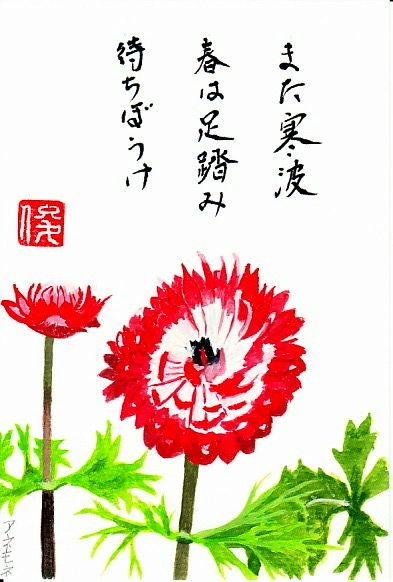 また寒波
春は足踏み
待ちぼうけ
アネモネ